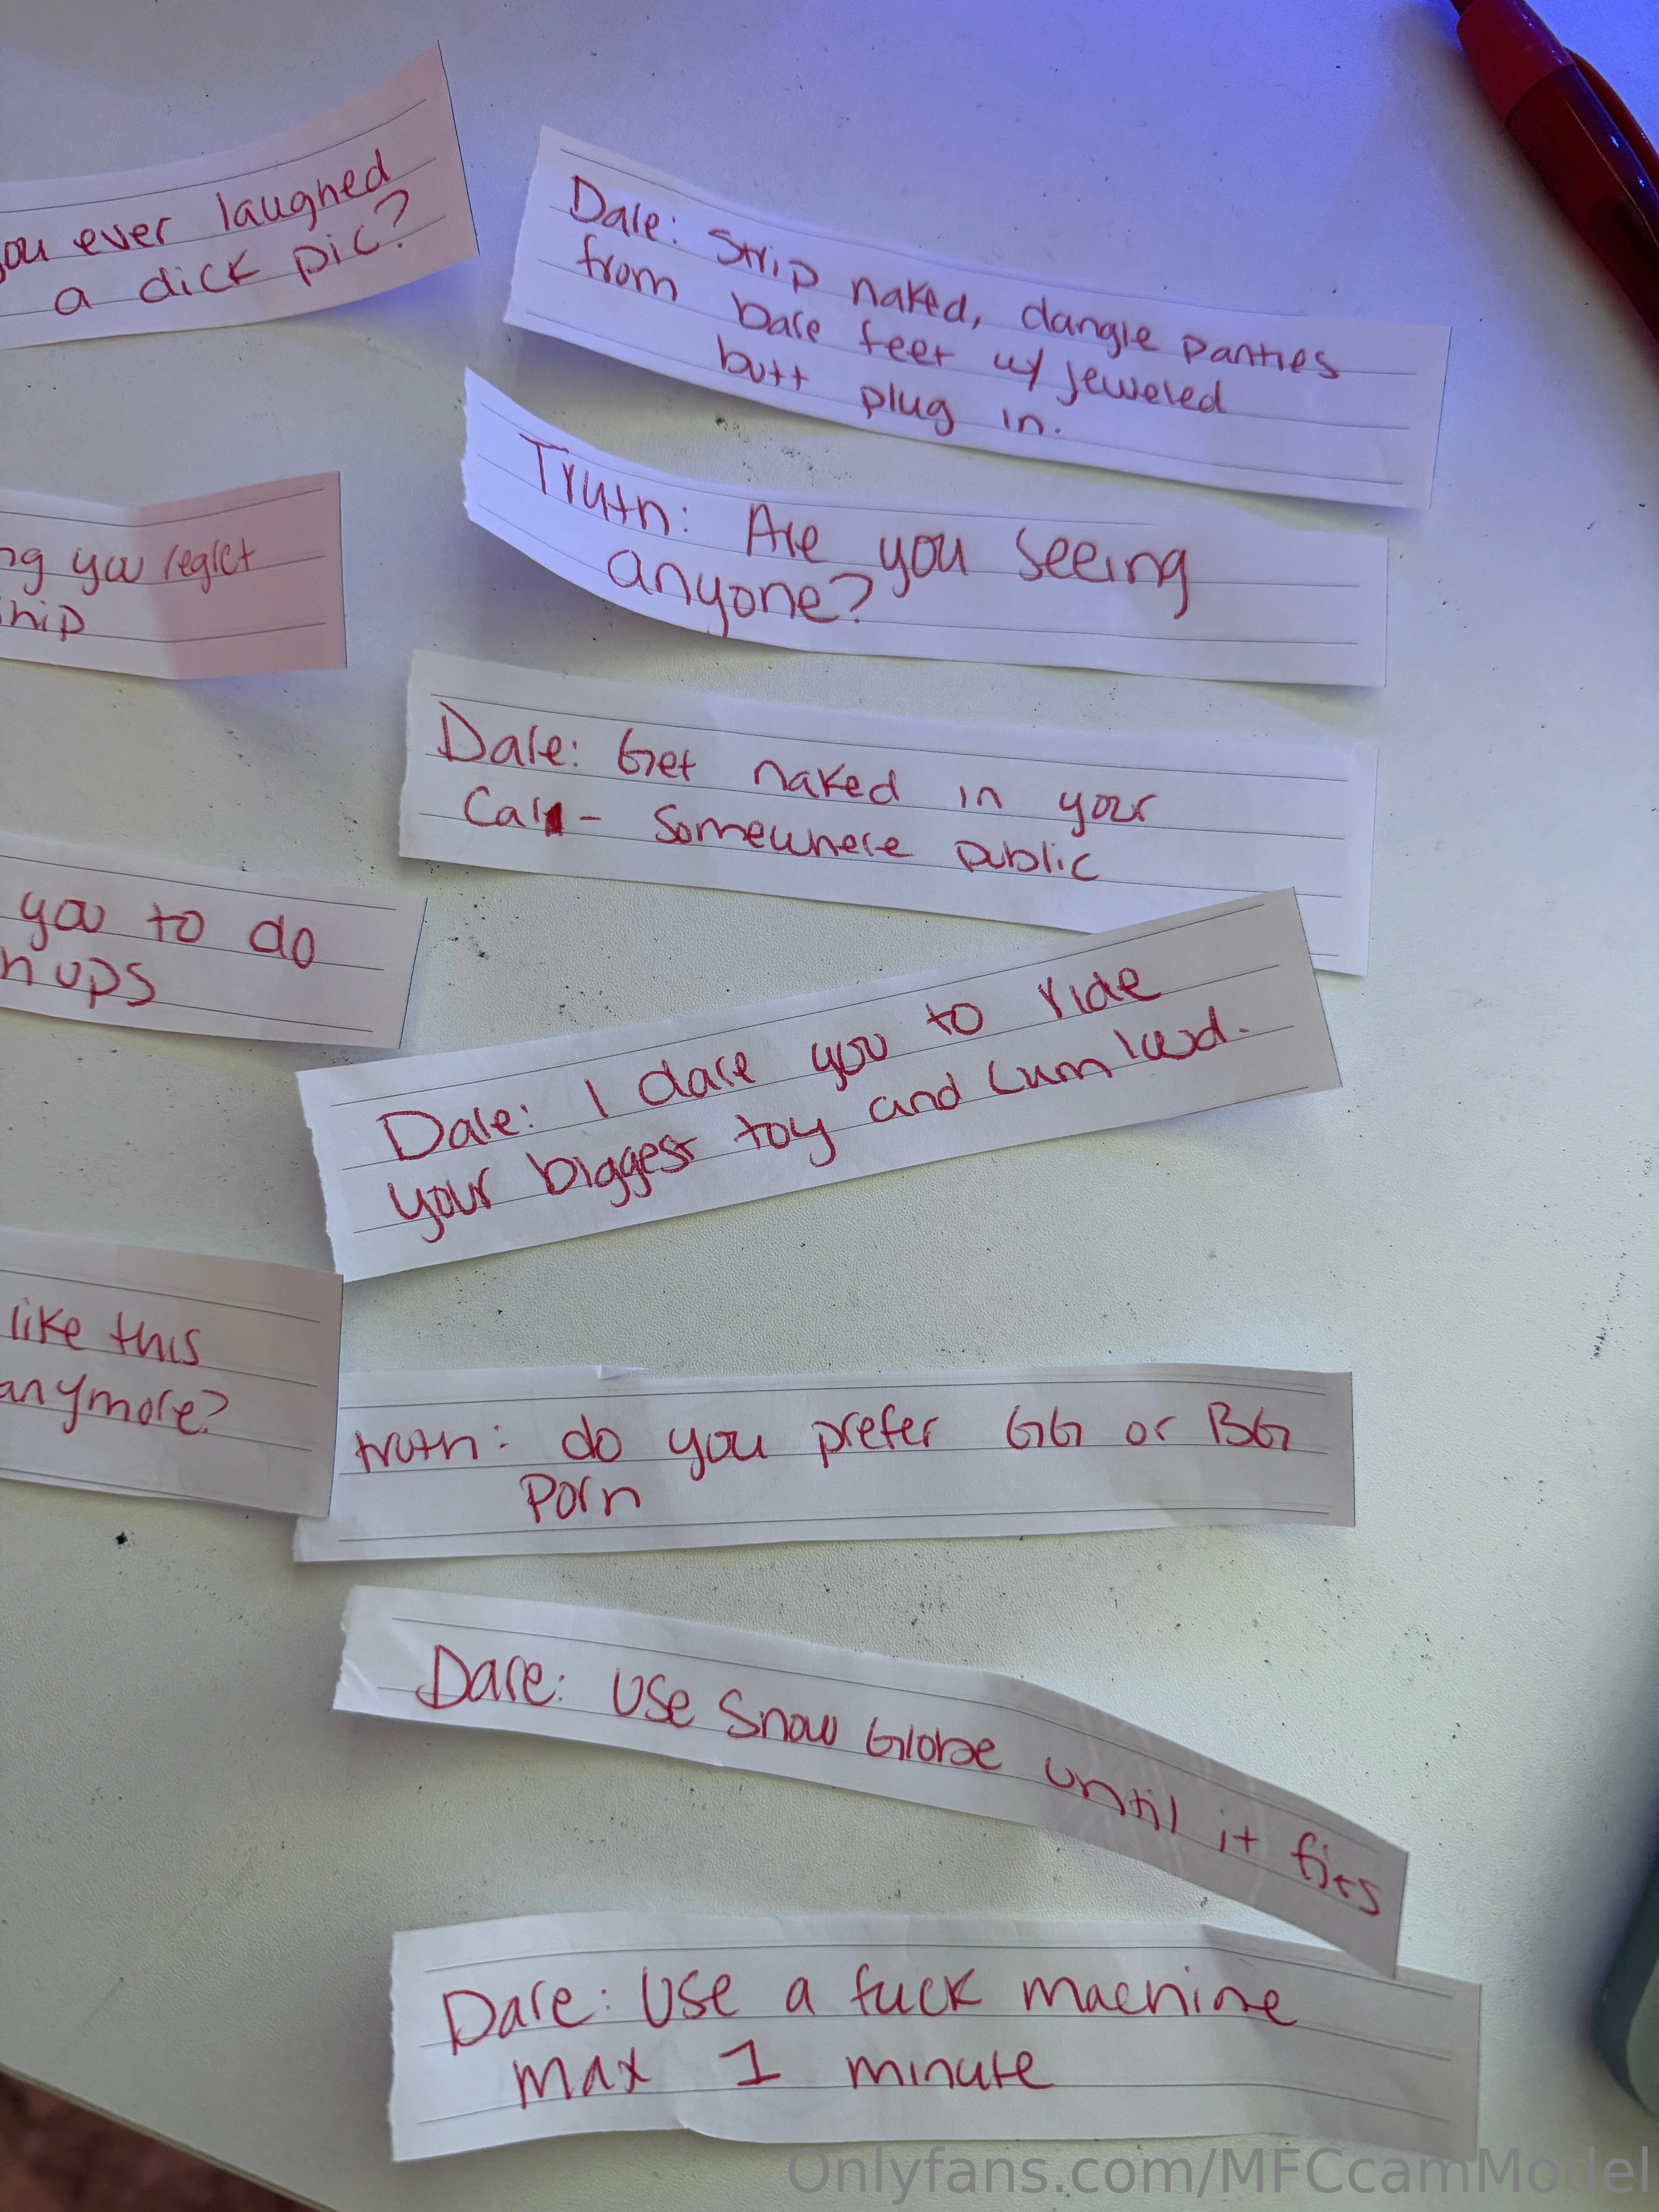 ou ever laughed
a dick pic?
ng you regret
hip
you to do
h ups
like this
anymore?
Dare: Strip naked, dangle panties
from bare feet w/ jeweled
butt plug in.
Truth: Are you seeing
anyone?
Dare: Get naked in your
Car - Somewhere public
Dare: I dare you to ride
your biggest toy and cum
truth: do you prefer GG or BG
Porn
Dare: Use Snow Globe until it fits
Dare: Use a fuck machine
max 1 minute
Onlyfans.com/MFCcamModel